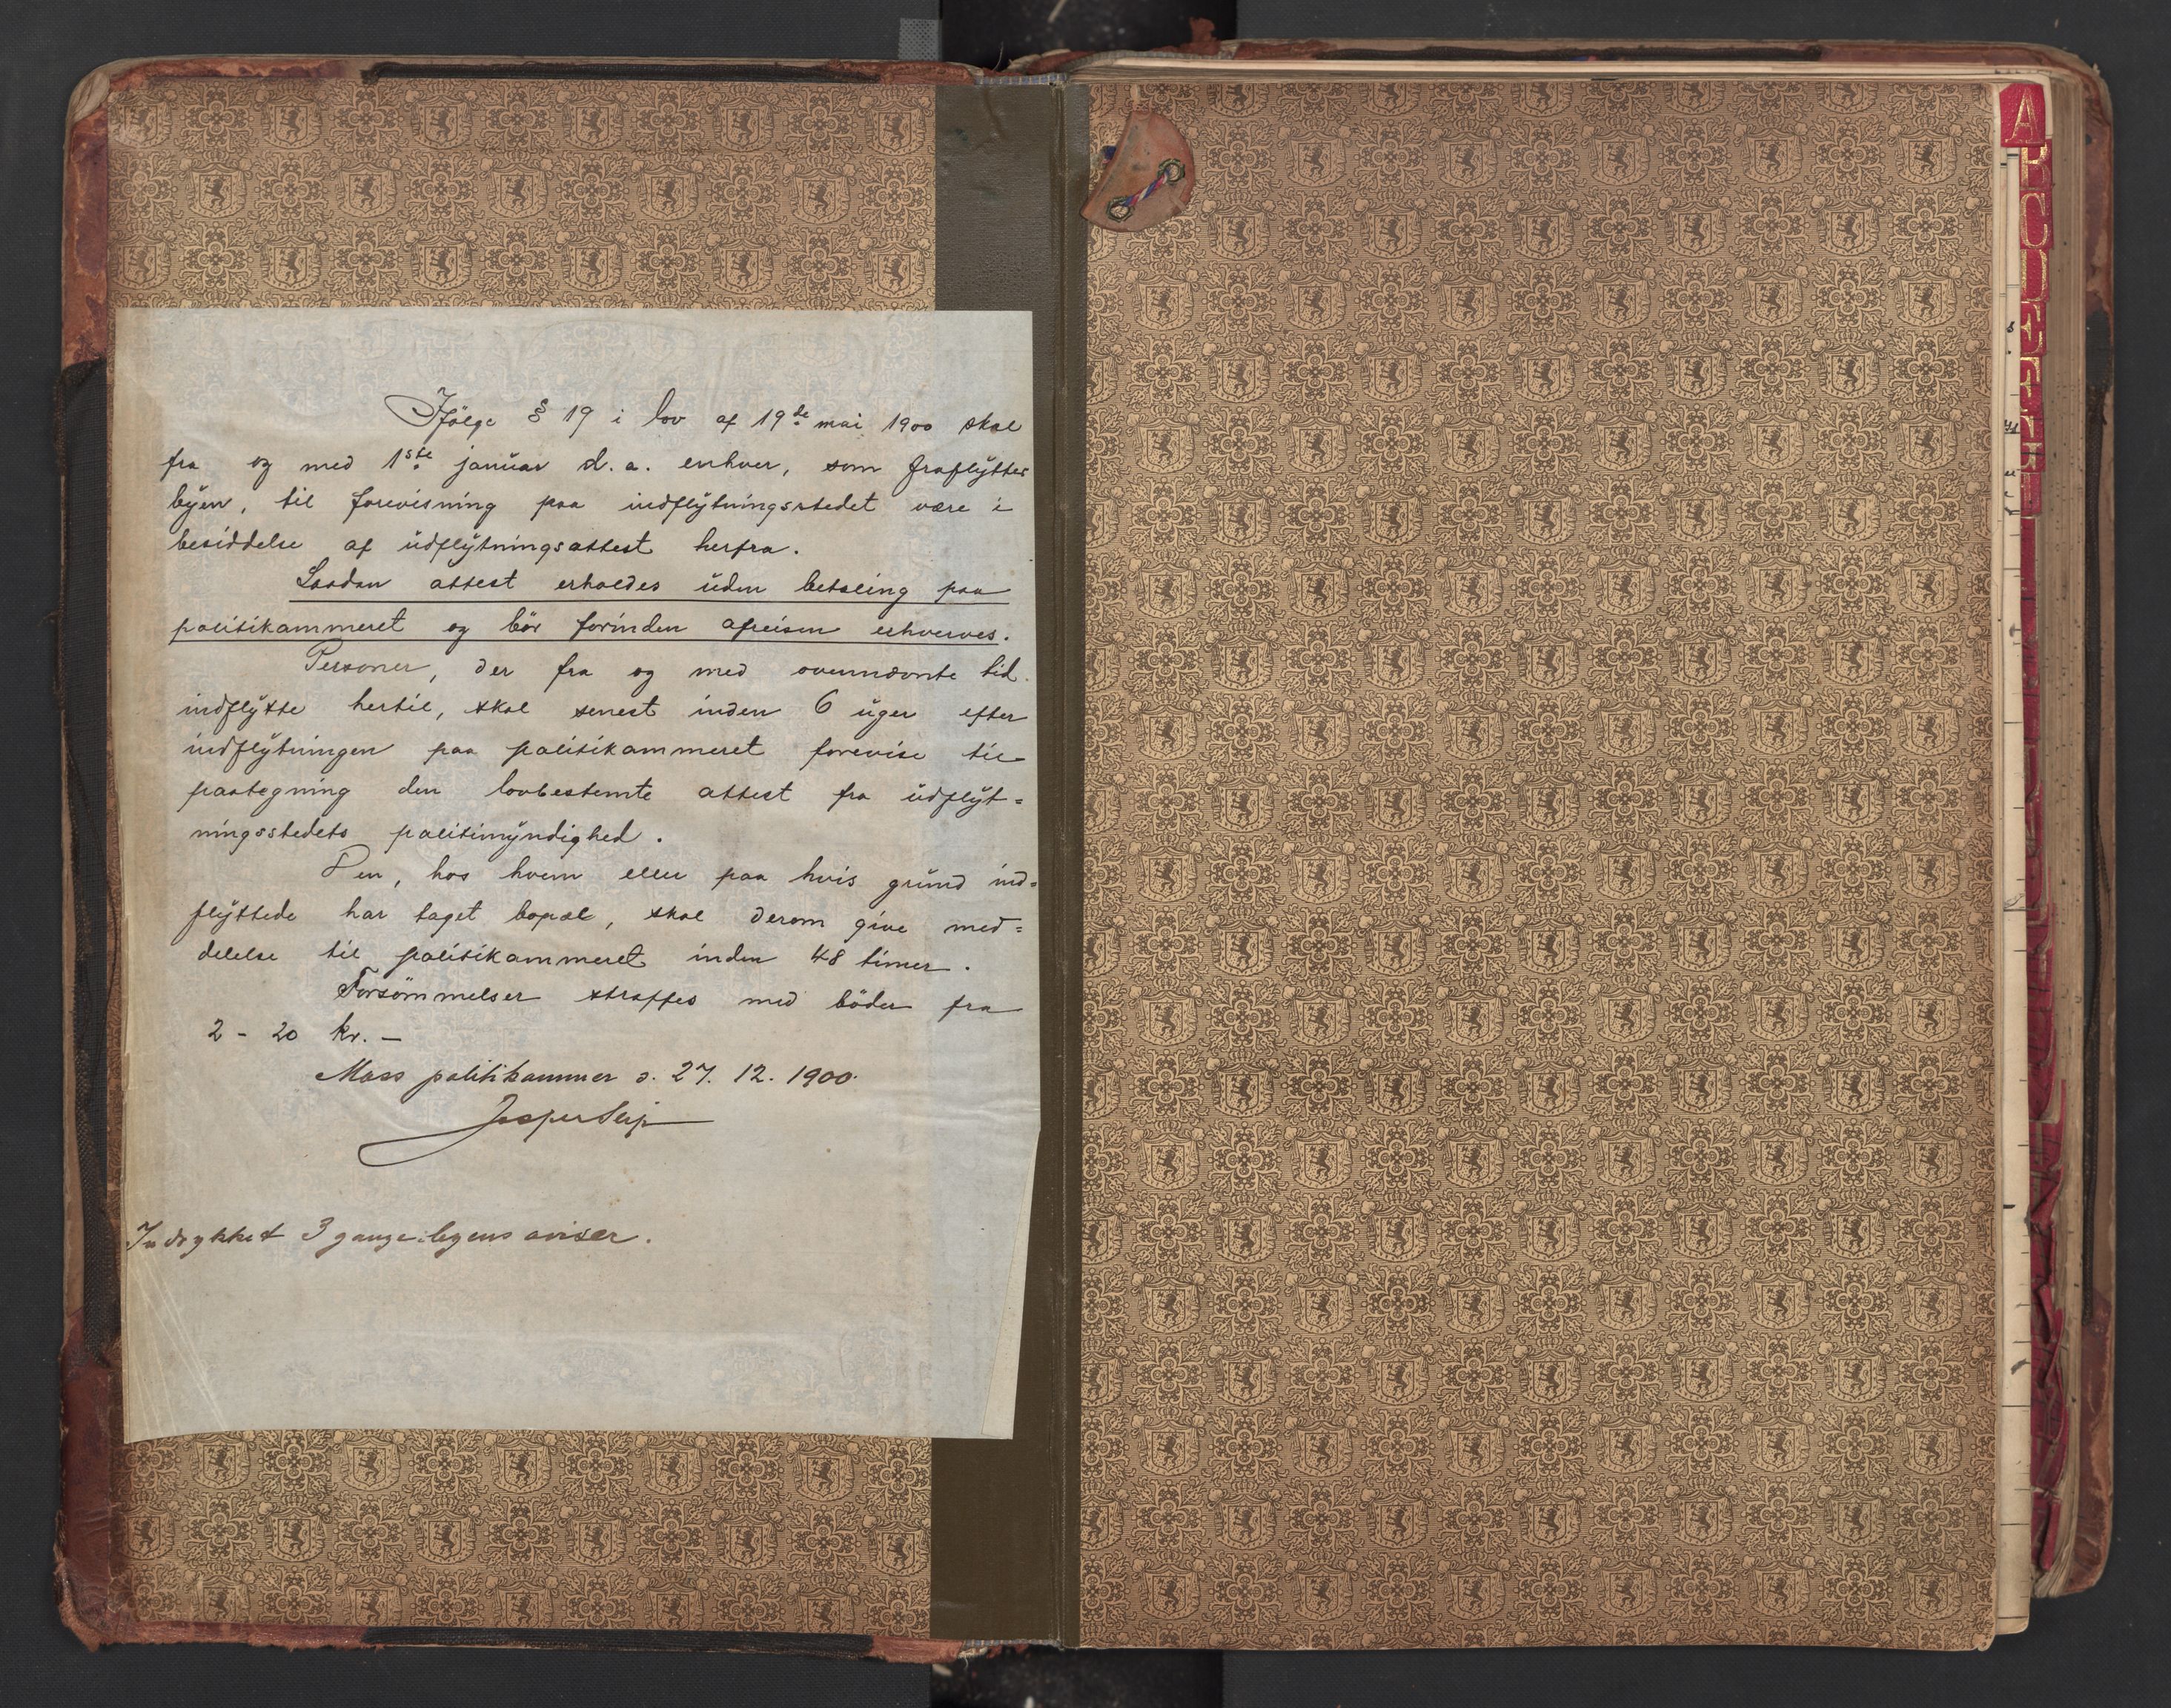 Ifölge § 19 i lov af 19de mai 1900 skal
fra og med 1ste januar d. a. enhver, som fraflytter
byen, til forevisning paa indflytningsstedet være i
besiddelse af udflytningsattest herfra.
Saadan attest erholdes uden betaling paa
politikammeret og bör forinden afreisen erhverves.
Personer, der fra og med ovennævnte tid
indflytte hertil, skal senest inden 6 uger efter
indflytningen paa politikammeret forevise til
paategning den lovbestemte attest fra udflyt=
ningsstedets politimyndighed.
Den, hos hvem eller paa hvis grund ind=
flyttede har taget bopæl, skal derom give med=
delelse til politikammeret inden 48 timer.
Forsömmelser straffes med böder fra
2 - 20 kr. –
Moss politikammer d. 27. 12. 1900.
Jesper Seip
Indrykket 3 gange i byens aviser.
A
B
C
D
E